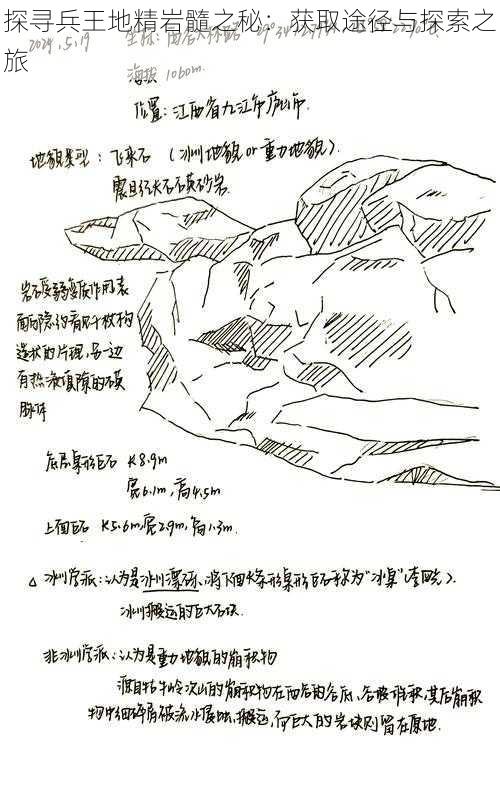 探寻兵王地精岩髓之秘：获取途径与探索之
旅
2024.5.19
海拔 1060m.
位置：江西省九江市庐山市.
地貌类型：飞来石 （冰川地貌 or 重力地貌）.
震旦纪
石英砂岩.
岩石受弱变质作用表
造状的片理，另一边
脉体
底层桌形巨石 长8.9m
宽6.1m，高4.5m
上面巨石 长5.6m，宽2.9m，高1.3m.
△ 冰川学派：认为是冰川漂砾，将下面
桌形巨石称为“冰桌”（李四光）.
冰川搬运的巨大石块.
非冰川学派：认为是重力地貌的崩积物
源自牯牛岭
的崩积物在西谷的谷底，
其后崩积
物中细碎屑被流水
搬运，而巨大的岩块则留在原地.